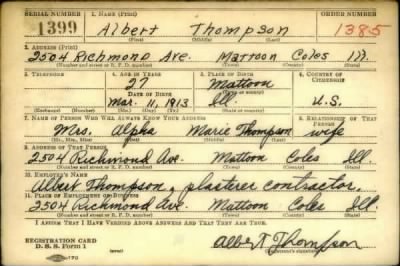 SERIAL NUMBER 1. NAME (Print) ORDER NUMBER
1399 Albert Thompson 1385
(First) (Middle) (Last)
2. ADDRESS (Print)
2504 Richmond Ave. Mattoon Coles Ill.
(Number and street or R. F. D. number) (Town) (County) (State)
3. TELEPHONE 4. AGE IN YEARS 5. PLACE OF BIRTH 6. COUNTRY OF CITIZENSHIP
27 Mattoon
DATE OF BIRTH (Town or county)
Mar. 11, 1913 Ill. U.S.
(Exchange) (Number) (Mo.) (Day) (Yr.) (State or country)
7. NAME OF PERSON WHO WILL ALWAYS KNOW YOUR ADDRESS 8. RELATIONSHIP OF THAT PERSON
Mrs. Alpha Marie Thompson wife
(Mr., Mrs., Miss) (First) (Middle) (Last)
9. ADDRESS OF THAT PERSON
2504 Richmond Ave. Mattoon Coles Ill.
(Number and street or R. F. D. number) (Town) (County) (State)
10. EMPLOYER'S NAME
Albert Thompson, plasterer contractor.
11. PLACE OF EMPLOYMENT OR BUSINESS
2504 Richmond Ave. Mattoon Coles Ill.
(Number and street or R. F. D. number) (Town) (County) (State)
I AFFIRM THAT I HAVE VERIFIED ABOVE ANSWERS AND THAT THEY ARE TRUE.
REGISTRATION CARD
D. S. S. Form 1
Albert Thompson